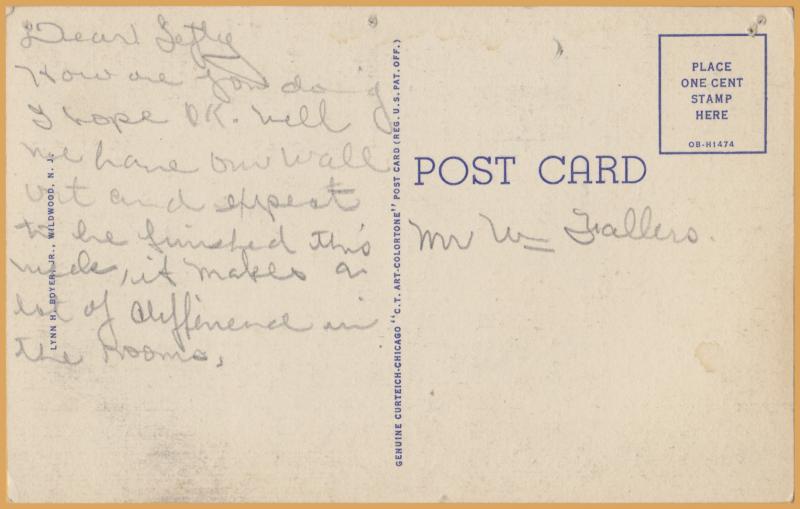 Dear Lefty
How are you doing
I hope OK. Well
we have our wall
out and expect
to be finished this
week, it makes a
lot of difference in
the rooms,
LYNN H. BOYER, JR., WILDWOOD, N. J.
GENUINE CURTEICH-CHICAGO "C.T. ART-COLORTONE" POST CARD (REG. U.S. PAT. OFF.)
POST CARD
PLACE
ONE CENT
STAMP
HERE
OB-H1474
Mr Wm Fallers.